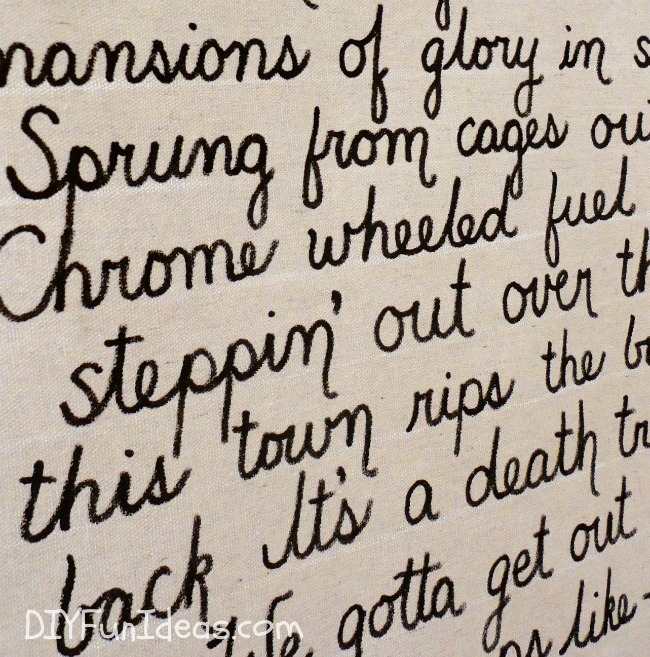 mansions of glory in
Sprung from cages out
Chrome wheeled fuel
steppin' out over
this town rips the
back It's a death
We gotta get out
like
DIYFunIdeas.com